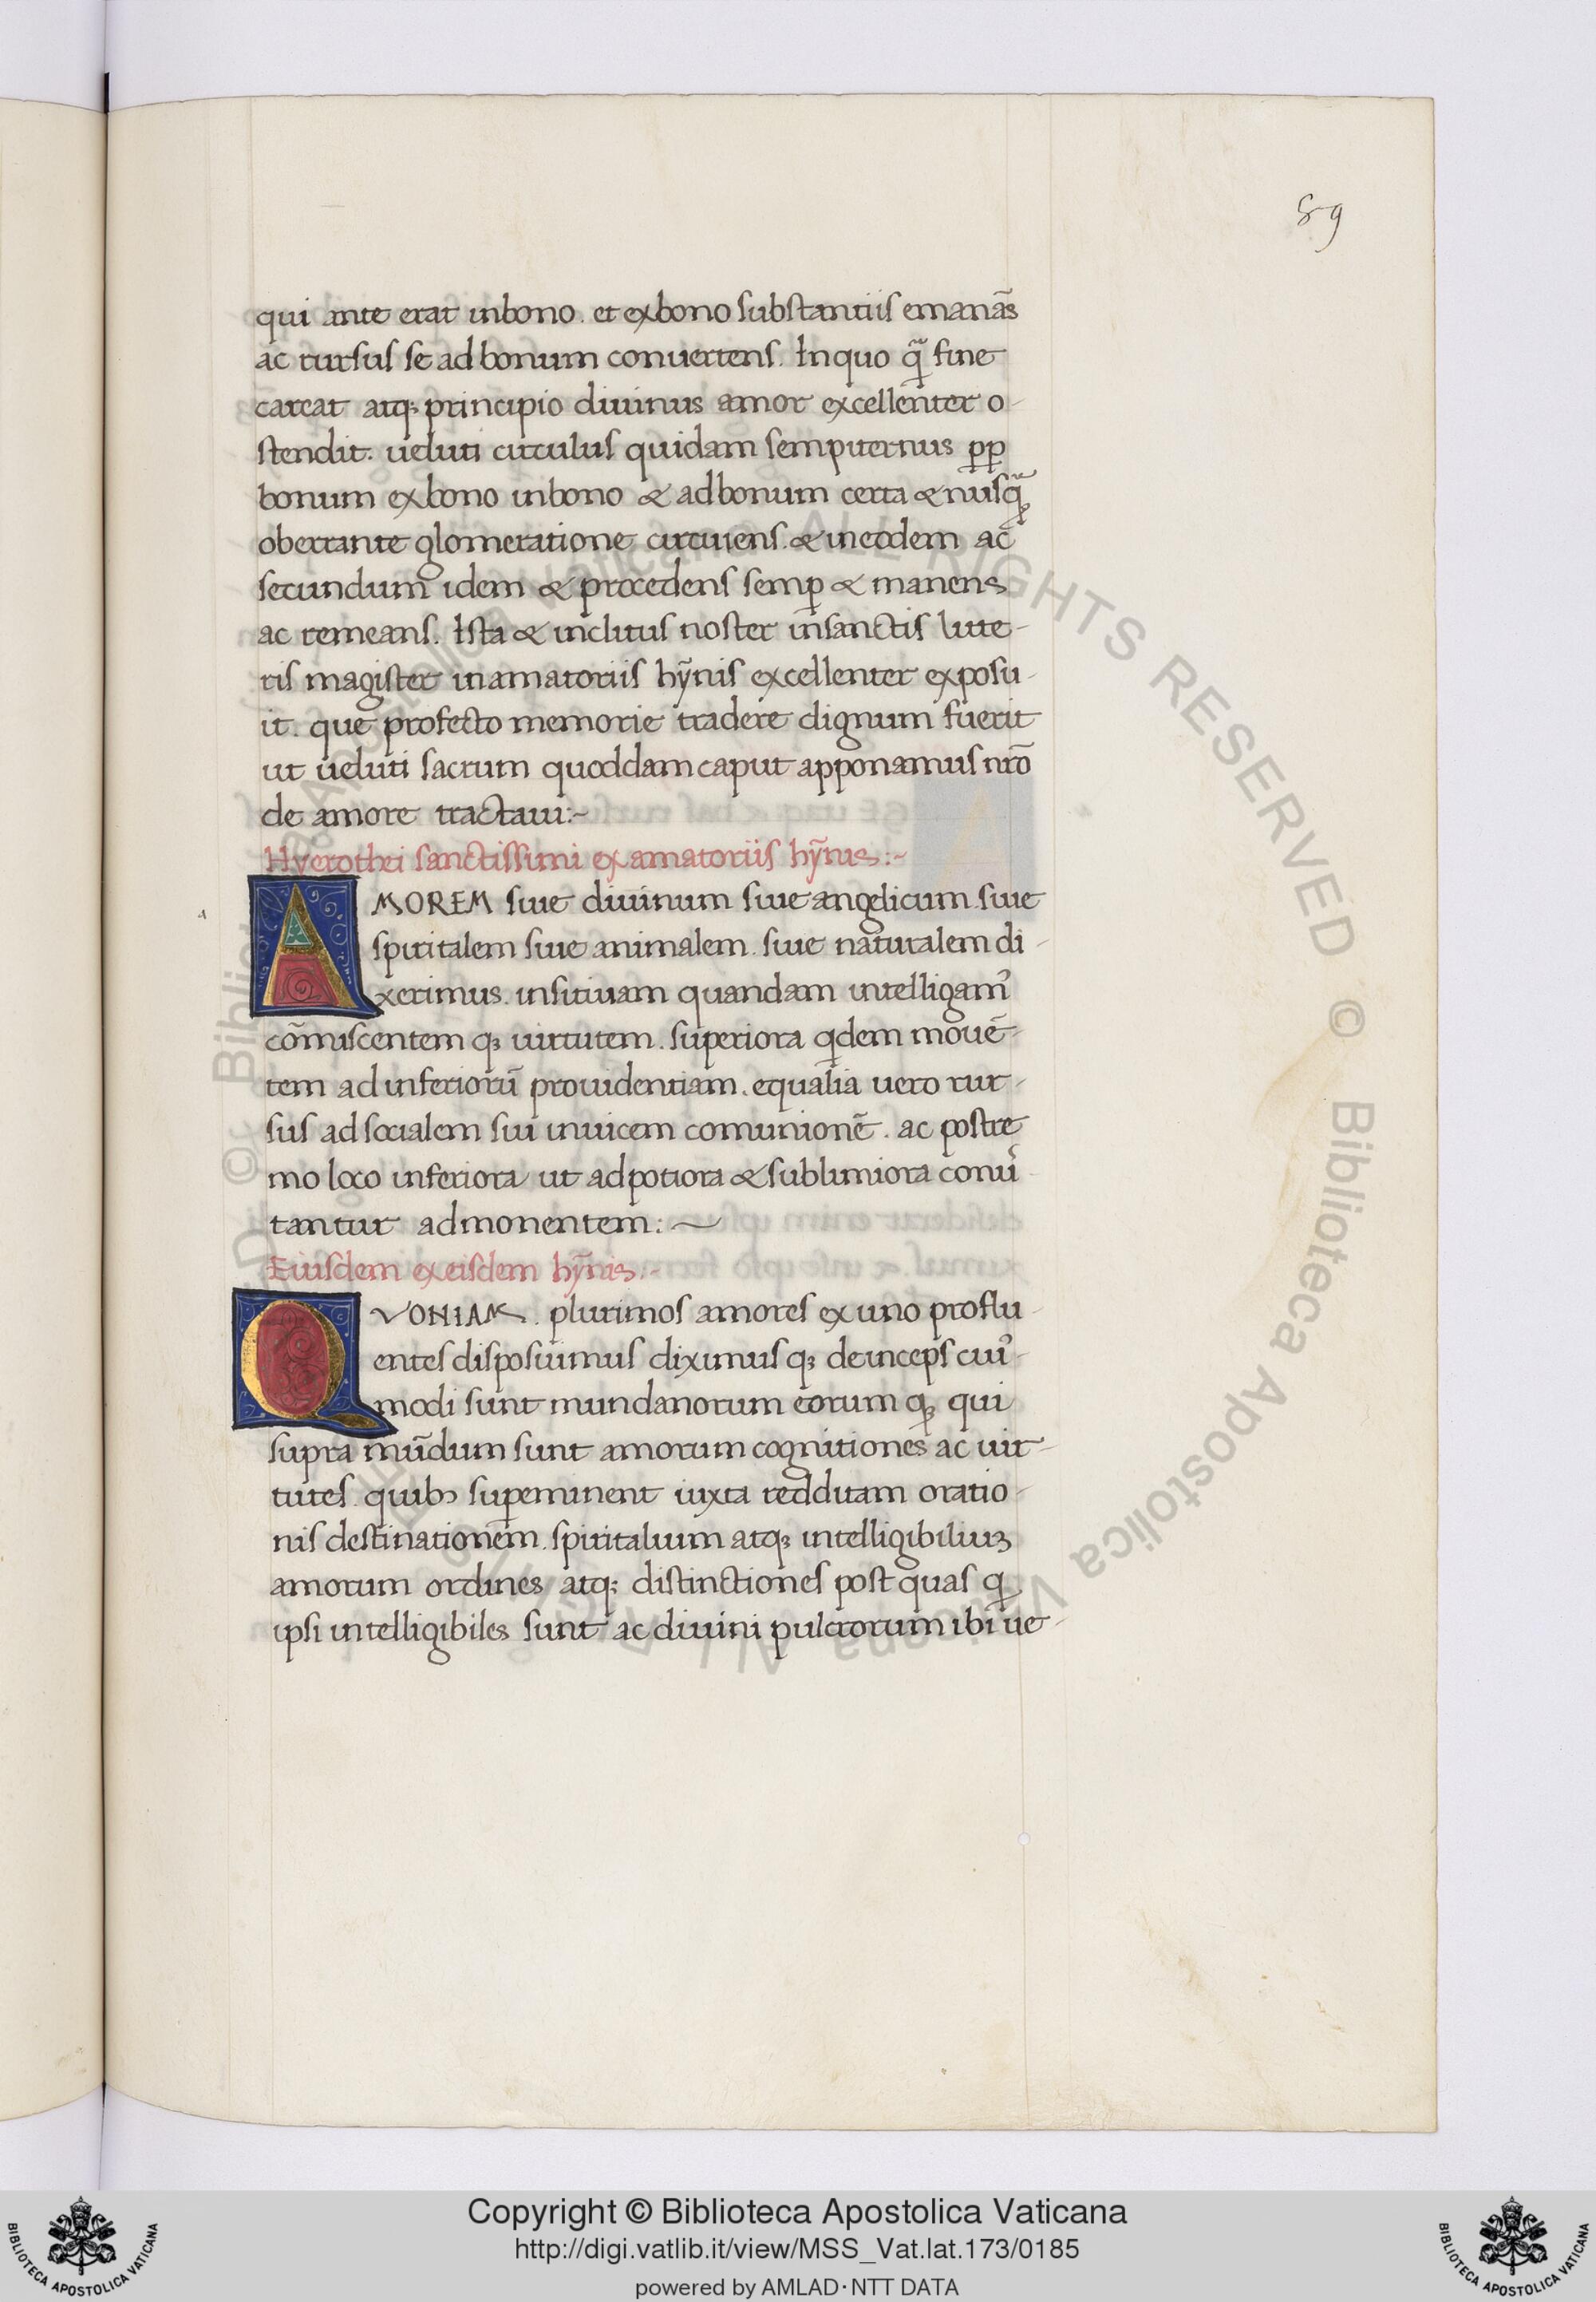 89
qui ante erat inbono. et exbono substantiis emanãs
ac rursus se ad bonum conuertens. Inquo q̃ fine
careat atq; principio diuinus amor excellenter o-
stendit. ueluti circulus quidam sempiternus ꝓꝑ
bonum exbono inbono & adbonum certa & nusq̃
oberrante glomeratione circuiens. & ineodem ac
secundum idem & procedens semꝑ & manens
ac remeans. Ista & inclitus noster insanctis litte-
ris magister inamatoriis hỹnis excellenter exposu-
it. que profecto memorie tradere dignum fuerit
ut ueluti sacrum quoddam caput apponamus nr̃o
de amore tractaui:~
Hyerothei sanctissimi ex amatoriis hỹnis:~
AMOREM siue diuinum siue angelicum siue
spiritalem siue animalem. siue naturalem di-
xerimus. insitiuam quandam intelligam᾿
cõmiscentem q; uirtutem. superiora qdem mouẽ-
tem ad inferiorũ prouidentiam. equalia uero rur-
sus ad socialem sui inuicem comunionẽ. ac postre
mo loco inferiora ut ad potiora & sublimiora conũ-
tantur admonentem:~
Eiusdem ex eisdem hỹnis:~
QVONIAM. plurimos amores ex uno proflu-
entes disposuimus diximus q; deinceps cui᾿-
modi sunt mundanorum eorum q; qui
supra mũdum sunt amorum cognitiones ac uir-
tutes. quibꝫ supeminent iuxta redditam oratio-
nis destinationem. spiritalium atq; intelligibiliuꝫ
amorum ordines atq; distinctiones post quas q
ipsi intelligibiles sunt ac diuini pulcrorum ibi ue-
© Biblioteca Apostolica Vaticana ALL RIGHTS RESERVED © Biblioteca Apostolica Vaticana ALL RIGHTS RESERVED
Copyright © Biblioteca Apostolica Vaticana
http://digi.vatlib.it/view/MSS_Vat.lat.173/0185
powered by AMLAD·NTT DATA
BIBLIOTECA APOSTOLICA VATICANA
BIBLIOTECA APOSTOLICA VATICANA